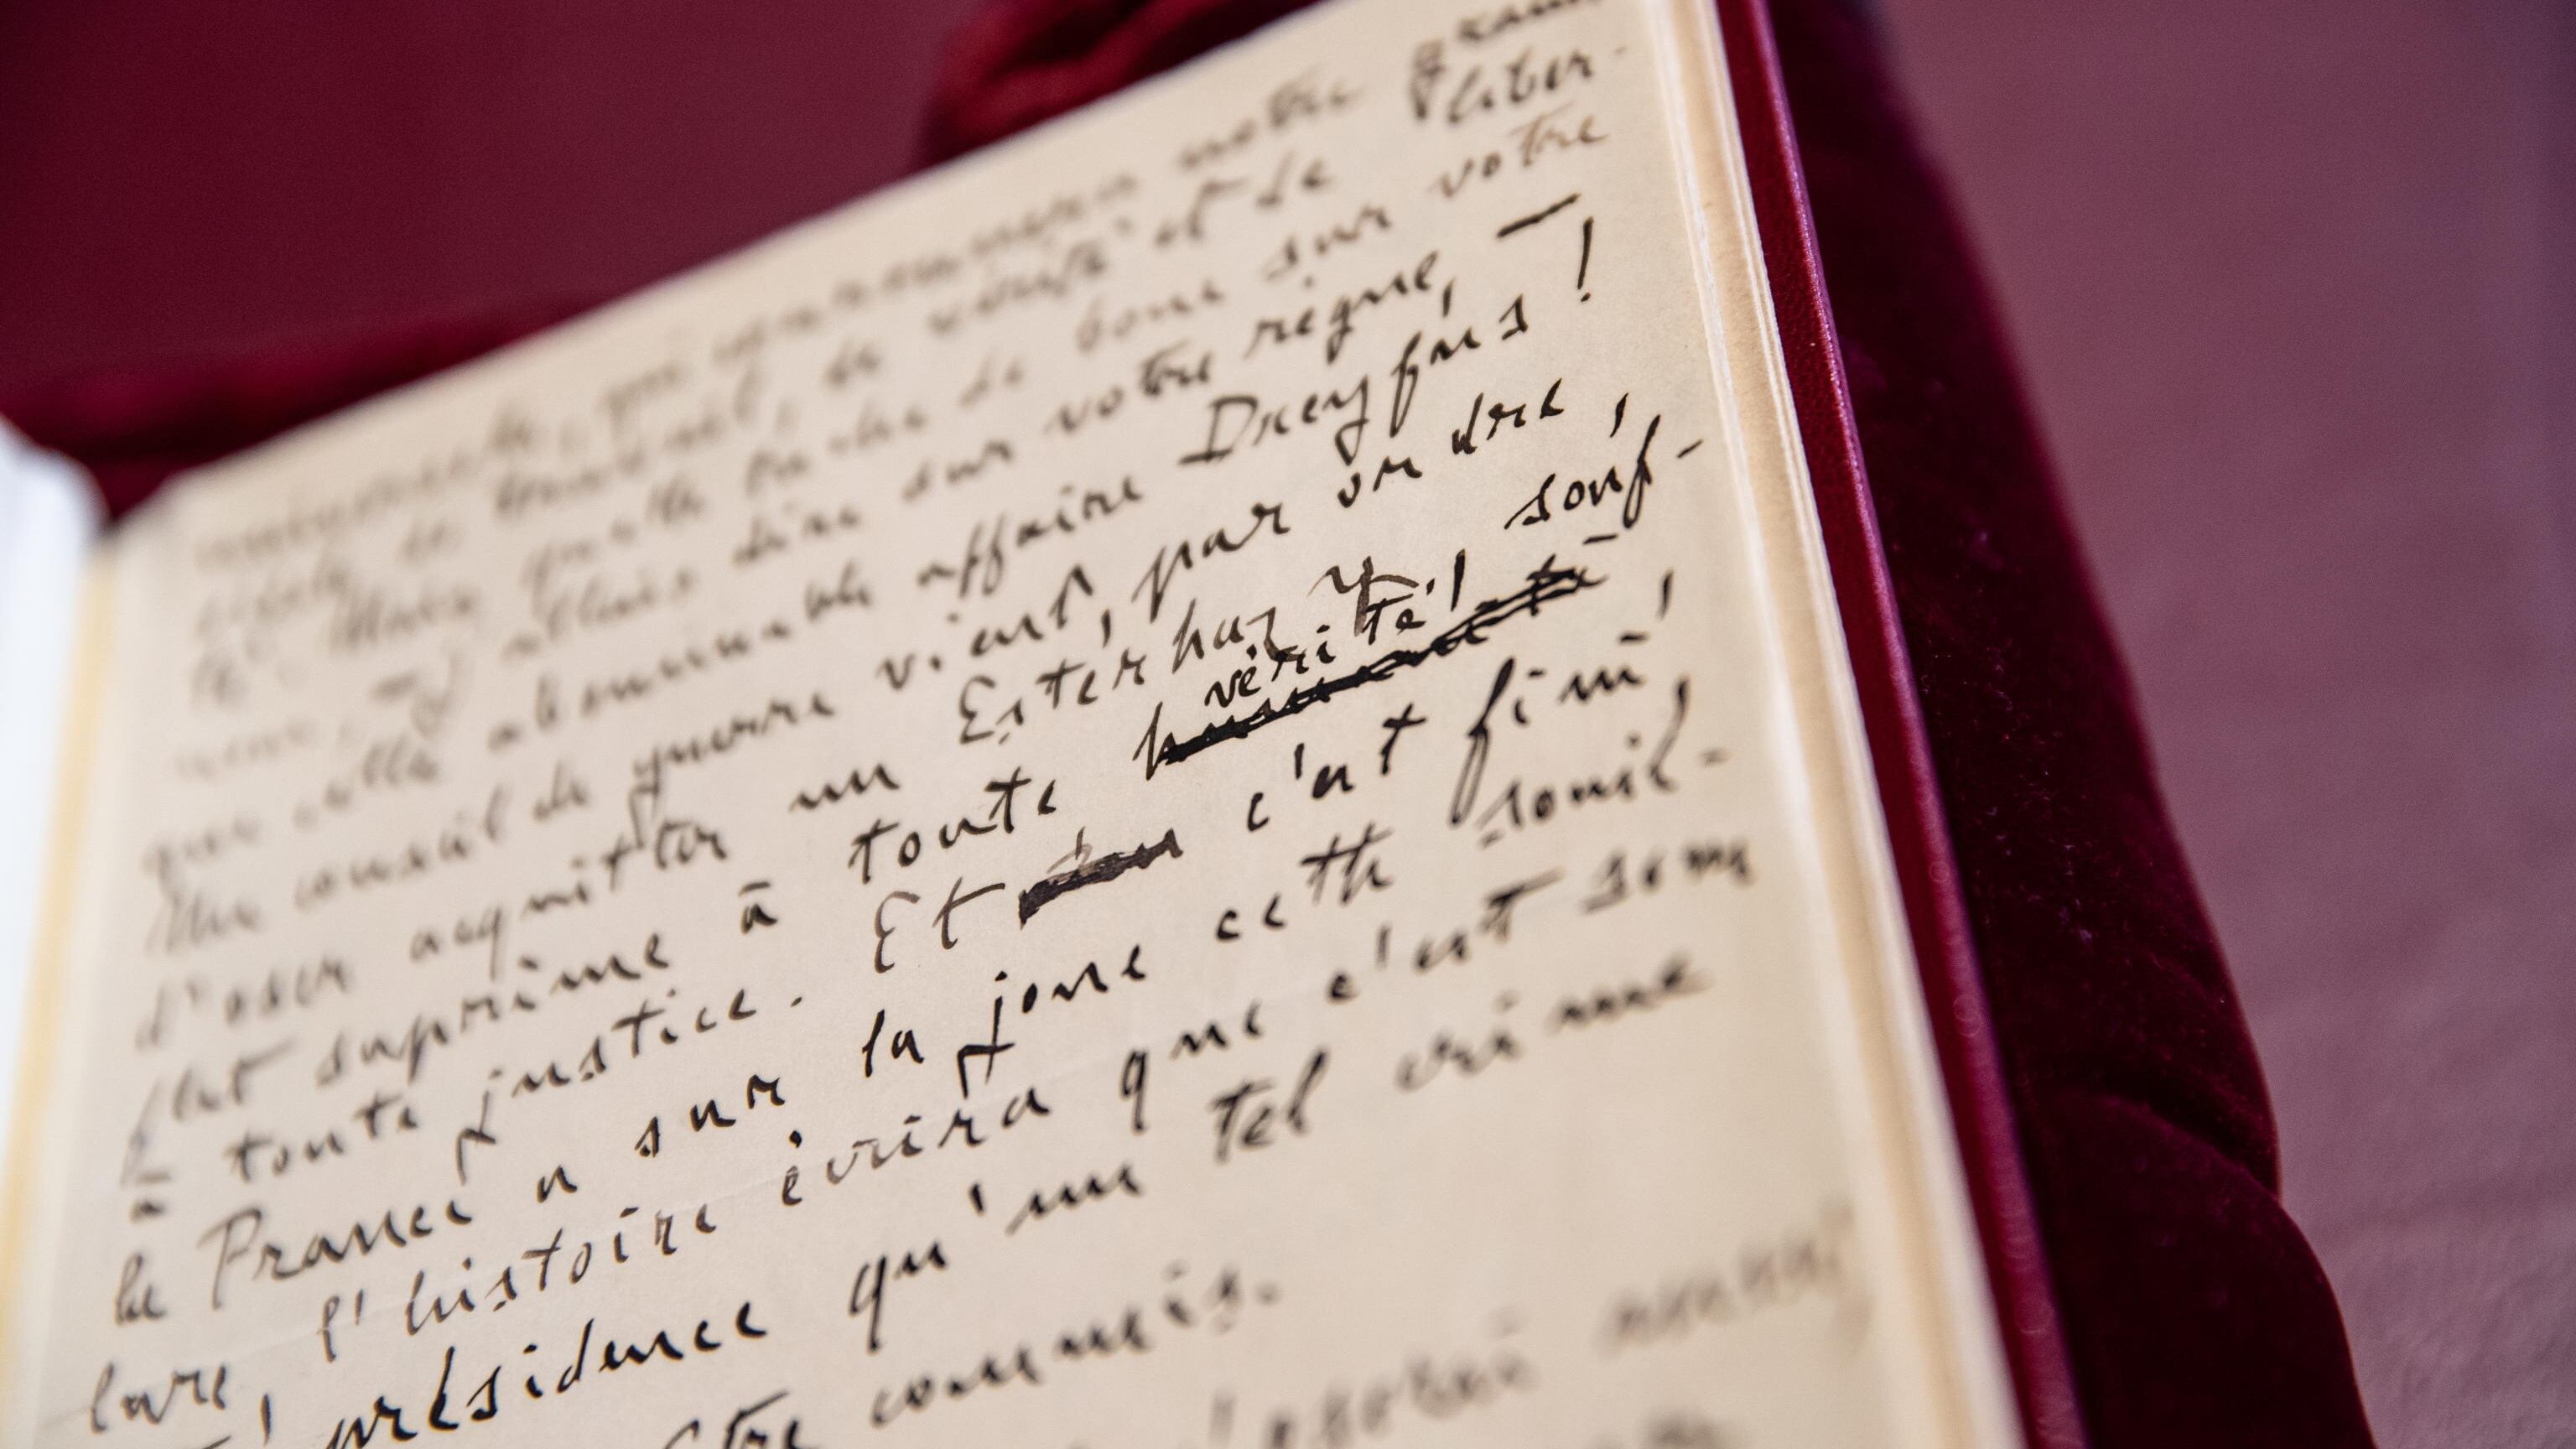 universelle, qui couronnera notre grand
siècle de travail, de vérité et de liber-
té. Mais quelle tache de boue sur votre
nom, — j'allais dire sur votre règne, —
que cette abominable affaire Dreyfus !
Un conseil de guerre vient, par ordre,
d'oser acquitter un Esterhazy, souf-
flet suprême à toute vérité,
à toute justice. Et c'est fini,
la France a sur la joue cette souil-
lure, l'histoire écrira que c'est sous
présidence qu'un tel crime
être commis.
j'oserai aussi,